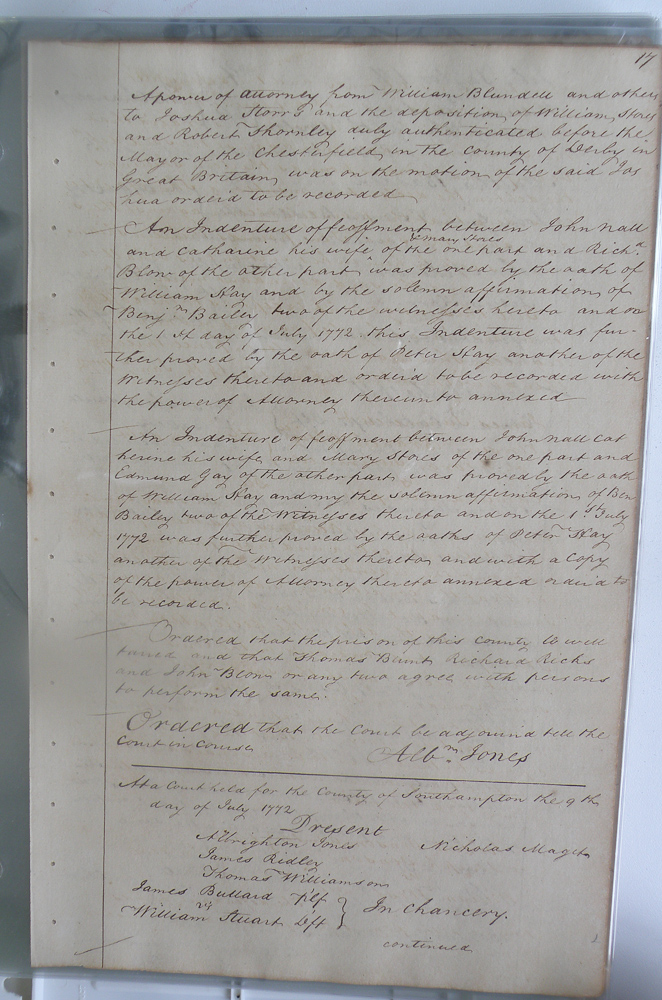 17
A power of attorney from William Blundell and others
to Joshua Storrs and the deposition of William Stores
and Robert Thornley duly authenticated before the
Mayor of the Chesterfield in the county of Derby in
Great Britain was on the motion of the said Jos
hua order'd to be recorded
An Indenture of feoffment between John nall
& Mary Stores
and Catharine his wife of the one part and Richd.
Blow of the other part was proved by the oath of
William Hay and by the solemn affirmation of
Benjn. Bailey two of the witnesses hereto and on
the 1 st day of July 1772 this Indenture was fur-
ther proved by the oath of Peter Hay another of the
Witnesses thereto and order'd to be recorded with
the power of Attorney thereunto annexed
An Indenture of feoffment between John nall Cat
herine his wife and Mary Stores of the one part and
Edmund Gay of the other part was proved by the oath
of William Hay and my the solemn affirmation of Ben
Bailey two of the Witnesses thereto and on the 1st July
1772 was further proved by the oaths of Peter Hay
another of the Witnesses thereto and with a Copy
of the power of Attorney thereto annexed order'd to
be recorded.
Ordered that the prison of this county be well
tarred and that Thomas Blunt Richard Ricks
and John Blow or any two agree with persons
to perform the same.
Ordered that the Court be adjourn'd till the
Court in Course
Albn. Jones
At a Court held for the County of Southampton the 9th
day of July 1772
Present
Albrighton Jones Nicholas Maget
James Ridley
Thomas Williamson
James Bullard Plf
vs } In Chancery.
William Stuart Dft
continued